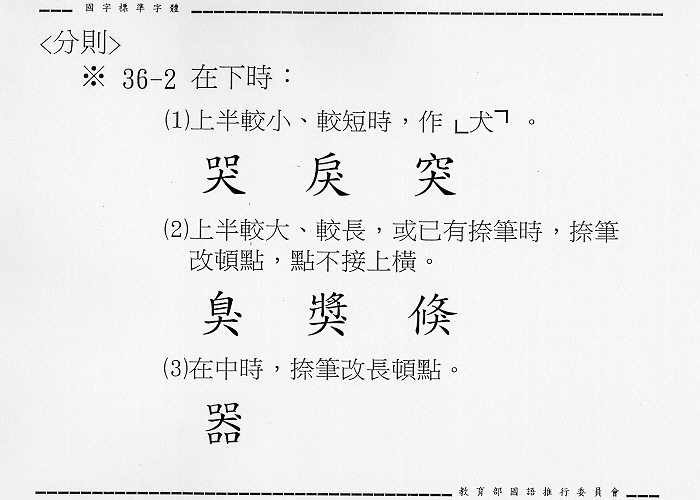 國字標準字體
<分則>
※ 36-2 在下時：
(1)上半較小、較短時，作﹂犬﹁。
哭 戾 突
(2)上半較大、較長，或已有捺筆時，捺筆
改頓點，點不接上橫。
臭 獎 倏
(3)在中時，捺筆改長頓點。
器
教育部國語推行委員會